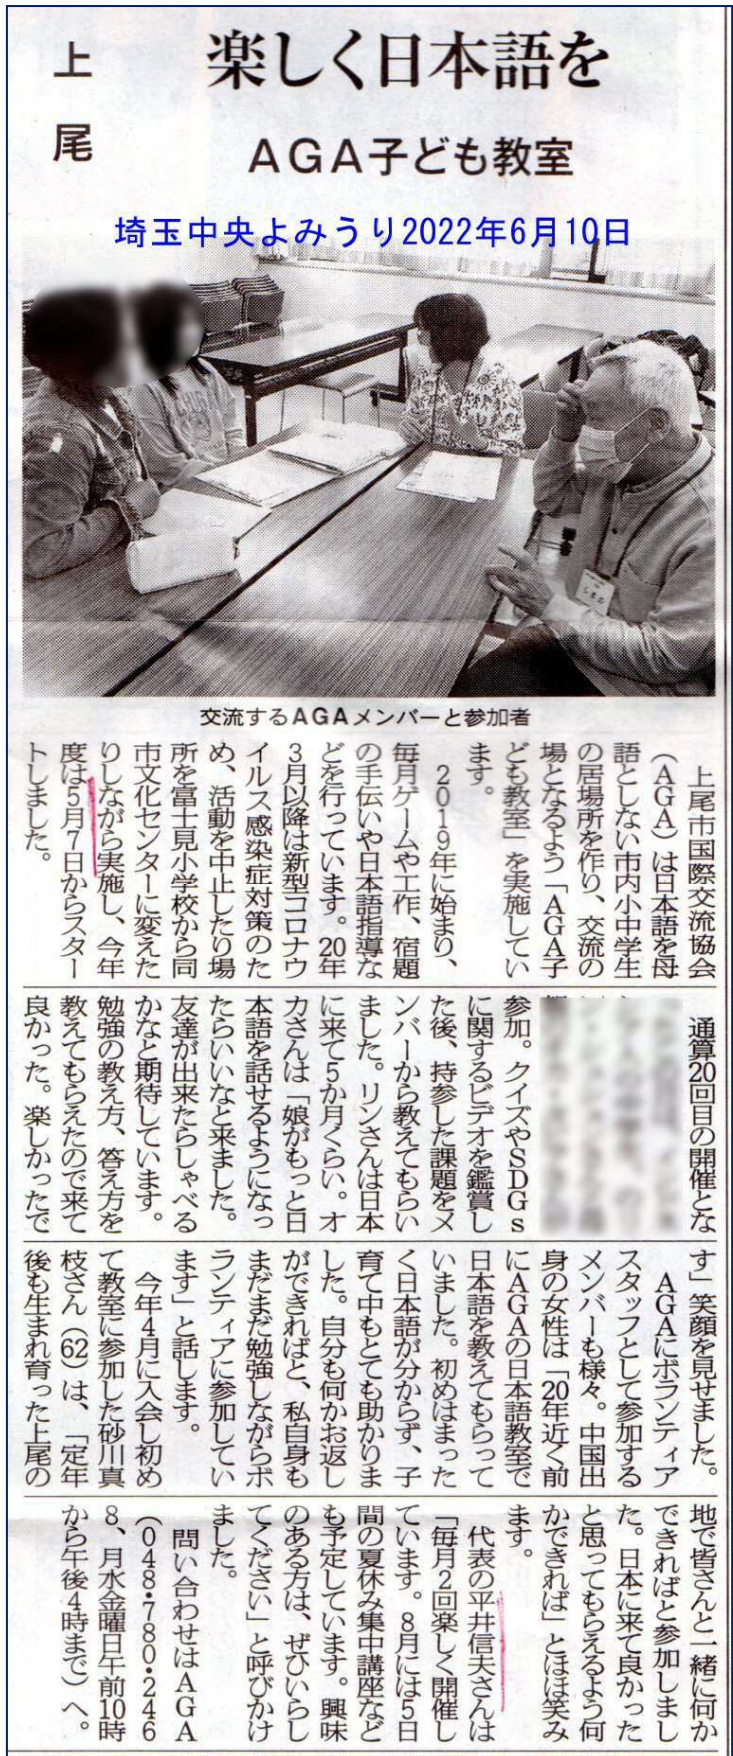 楽しく日本語を
上尾
AGA子ども教室
埼玉中央よみうり2022年6月10日
交流するAGAメンバーと参加者
上尾市国際交流協会
（AGA）は日本語を母
語としない市内小中学生
の居場所を作り、交流の
場となるよう「AGA子
ども教室」を実施してい
ます。
2019年に始まり、
毎月ゲームや工作、宿題
の手伝いや日本語指導な
どを行っています。20年
3月以降は新型コロナウ
イルス感染症対策のた
め、活動を中止したり場
所を富士見小学校から同
市文化センターに変えた
りしながら実施し、今年
度は5月7日からスター
トしました。
通算20回目の開催とな
参加。クイズやSDGs
に関するビデオを鑑賞し
た後、持参した課題をメ
ンバーから教えてもらい
ました。リンさんは日本
に来て5か月くらい。オ
カさんは「娘がもっと日
本語を話せるようになっ
たらいいなと来ました。
友達が出来たらしゃべる
かなと期待しています。
勉強の教え方、答え方を
教えてもらえたので来て
良かった。楽しかったで
す」笑顔を見せました。
AGAにボランティア
スタッフとして参加する
メンバーも様々。中国出
身の女性は「20年近く前
にAGAの日本語教室で
日本語を教えてもらって
いました。初めはまった
く日本語が分からず、子
育て中もとても助かりま
した。自分も何かお返し
ができればと、私自身も
まだまだ勉強しながらボ
ランティアに参加してい
ます」と話します。
今年4月に入会し初め
て教室に参加した砂川真
枝さん（62）は、「定年
後も生まれ育った上尾の
地で皆さんと一緒に何か
できればと参加しまし
た。日本に来て良かった
と思ってもらえるよう何
かできれば」とほほ笑み
ます。
代表の平井信夫さんは
「毎月2回楽しく開催し
ています。8月には5日
間の夏休み集中講座など
も予定しています。興味
のある方は、ぜひいらし
てください」と呼びかけ
ました。
問い合わせはAGA
（048・780・246
8、月水金曜日午前10時
から午後4時まで）へ。